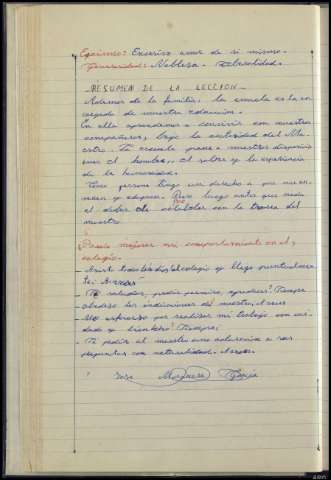 Egoísmo: Excesivo amor de si mismo.
Generosidad: Nobleza. Liberalidad.
RESUMEN DE LA LECCION
Ademas de la familia, la escuela es la en
cargada de nuestra educacion.
En ella aprendemos a convivir con nuestros
compañeros, bajo la autoridad del Ma
estro. La escuela pone a nuestra disposicio
nes el hombre, el saber y la experiencia
de la humanidad.
Como persona tengo un derecho a que me en
señen y eduquen. Pero luego antes que nada
el deber de colaborar con la tarea del
maestro.
Puedo mejorar mi comportamiento en el
colegio.
- Asisto todos los dias al colegio y llego puntualmen
te: A veces
- Se saludar, pedir permiso, agradecer? Siempre
obedezco las indicaciones del maestro, A veces
- Me esfuerzo por realizar mi trabajo con cui
dado y bien hecho? Siempre;
- Se pedir al maestro una aclaracion a sus
preguntas con naturalidad. A veces.
Jose